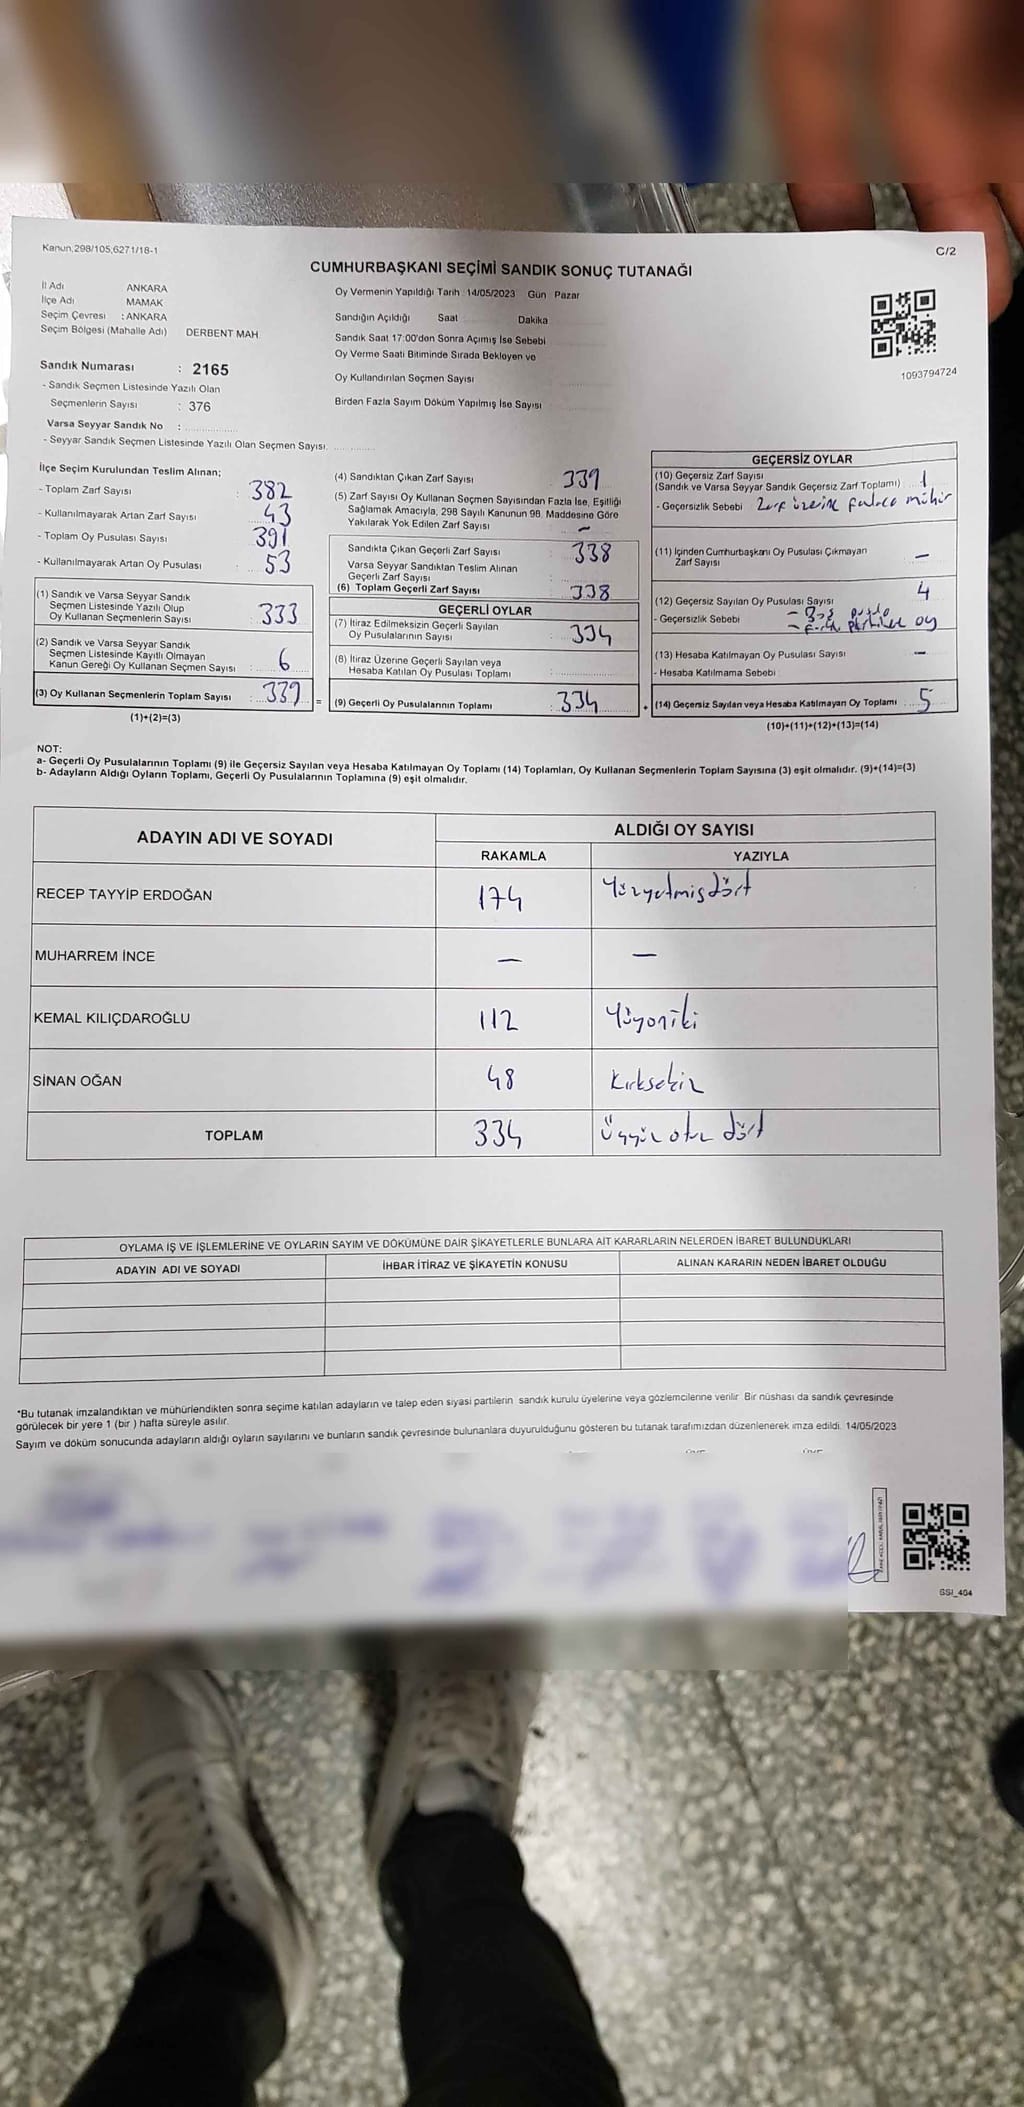 Kanun,298/105,6271/18-1
C/2
CUMHURBAŞKANI SEÇİMİ SANDIK SONUÇ TUTANAĞI
İl Adı ANKARA
İlçe Adı MAMAK
Seçim Çevresi : ANKARA
Seçim Bölgesi (Mahalle Adı) DERBENT MAH
Sandık Numarası : 2165
- Sandık Seçmen Listesinde Yazılı Olan
Seçmenlerin Sayısı : 376
Varsa Seyyar Sandık No :
- Seyyar Sandık Seçmen Listesinde Yazılı Olan Seçmen Sayısı:
Oy Vermenin Yapıldığı Tarih :14/05/2023 Gün Pazar
Sandığın Açıldığı Saat Dakika
Sandık Saat 17:00'den Sonra Açımış İse Sebebi
Oy Verme Saati Bitiminde Sırada Bekleyen ve
Oy Kullandırılan Seçmen Sayısı
Birden Fazla Sayım Döküm Yapılmış İse Sayısı
1093794724
İlçe Seçim Kurulundan Teslim Alınan;
- Toplam Zarf Sayısı : 382
- Kullanılmayarak Artan Zarf Sayısı : 43
- Toplam Oy Pusulası Sayısı : 391
- Kullanılmayarak Artan Oy Pusulası : 53
(1) Sandık ve Varsa Seyyar Sandık
Seçmen Listesinde Yazılı Olup
Oy Kullanan Seçmenlerin Sayısı : 333
(2) Sandık ve Varsa Seyyar Sandık
Seçmen Listesinde Kayıtlı Olmayan
Kanun Gereği Oy Kullanan Seçmen Sayısı : 6
(3) Oy Kullanan Seçmenlerin Toplam Sayısı : 339
(1)+(2)=(3)
(4) Sandıktan Çıkan Zarf Sayısı : 339
(5) Zarf Sayısı Oy Kullanan Seçmen Sayısından Fazla İse, Eşitliği
Sağlamak Amacıyla, 298 Sayılı Kanunun 98. Maddesine Göre
Yakılarak Yok Edilen Zarf Sayısı : –
Sandıkta Çıkan Geçerli Zarf Sayısı : 338
Varsa Seyyar Sandıktan Teslim Alınan
Geçerli Zarf Sayısı :
(6) Toplam Geçerli Zarf Sayısı : 338
GEÇERLİ OYLAR
(7) İtiraz Edilmeksizin Geçerli Sayılan
Oy Pusulalarının Sayısı : 334
(8) İtiraz Üzerine Geçerli Sayılan veya
Hesaba Katılan Oy Pusulası Toplamı :
= (9) Geçerli Oy Pusulalarının Toplamı : 334
GEÇERSİZ OYLAR
(10) Geçersiz Zarf Sayısı
(Sandık ve Varsa Seyyar Sandık Geçersiz Zarf Toplamı) : 1
- Geçersizlik Sebebi Zarf üzerine fazla mühür
(11) İçinden Cumhurbaşkanı Oy Pusulası Çıkmayan
Zarf Sayısı –
(12) Geçersiz Sayılan Oy Pusulası Sayısı 4
- Geçersizlik Sebebi – Boş pusula
– oy
(13) Hesaba Katılmayan Oy Pusulası Sayısı –
- Hesaba Katılmama Sebebi
+ (14) Geçersiz Sayılan veya Hesaba Katılmayan Oy Toplamı : 5
(10)+(11)+(12)+(13)=(14)
NOT:
a- Geçerli Oy Pusulalarının Toplamı (9) ile Geçersiz Sayılan veya Hesaba Katılmayan Oy Toplamı (14) Toplamları, Oy Kullanan Seçmenlerin Toplam Sayısına (3) eşit olmalıdır. (9)+(14)=(3)
b- Adayların Aldığı Oyların Toplamı, Geçerli Oy Pusulalarının Toplamına (9) eşit olmalıdır.
ADAYIN ADI VE SOYADI ALDIĞI OY SAYISI
RAKAMLA YAZIYLA
RECEP TAYYİP ERDOĞAN 174 Yüzyetmişdört
MUHARREM İNCE — —
KEMAL KILIÇDAROĞLU 112 Yüzoniki
SİNAN OĞAN 48 Kırksekiz
TOPLAM 334 Üçyüz otuz dört
OYLAMA İŞ VE İŞLEMLERİNE VE OYLARIN SAYIM VE DÖKÜMÜNE DAİR ŞİKAYETLERLE BUNLARA AİT KARARLARIN NELERDEN İBARET BULUNDUKLARI
ADAYIN ADI VE SOYADI İHBAR İTİRAZ VE ŞİKAYETİN KONUSU ALINAN KARARIN NEDEN İBARET OLDUĞU
*Bu tutanak imzalandıktan ve mühürlendikten sonra seçime katılan adayların ve talep eden siyasi partilerin sandık kurulu üyelerine veya gözlemcilerine verilir. Bir nüshası da sandık çevresinde
görülecek bir yere 1 (bir ) hafta süreyle asılır.
Sayım ve döküm sonucunda adayların aldığı oyların sayılarını ve bunların sandık çevresinde bulunanlara duyurulduğunu gösteren bu tutanak tarafımızdan düzenlenerek imza edildi. 14/05/2023
SSI_404